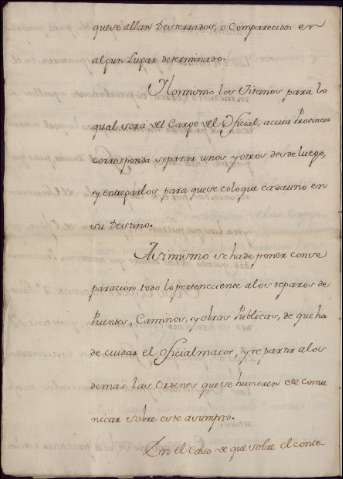 que se allan desterrados, o Comparecidos en
algun Lugar determinado.
Honrismo los Sitenios para lo
qual sera del Cargo del Oficial, a cuia Provincia
corresponda separar unos y otros desde luego,
y entregarlos para que se coloque cada uno en
su Destino.
Asimismo se ha de poner con se
paracion todo lo perteneciente a los reparos de
Puentes, Caminos, y obras Publicas, de que ha
de cuidar el oficial maior, y repartir a los
demas las Ordenes que se huvieren de comu
nicar sobre este asumpto.
En el caso de que sobre el conte